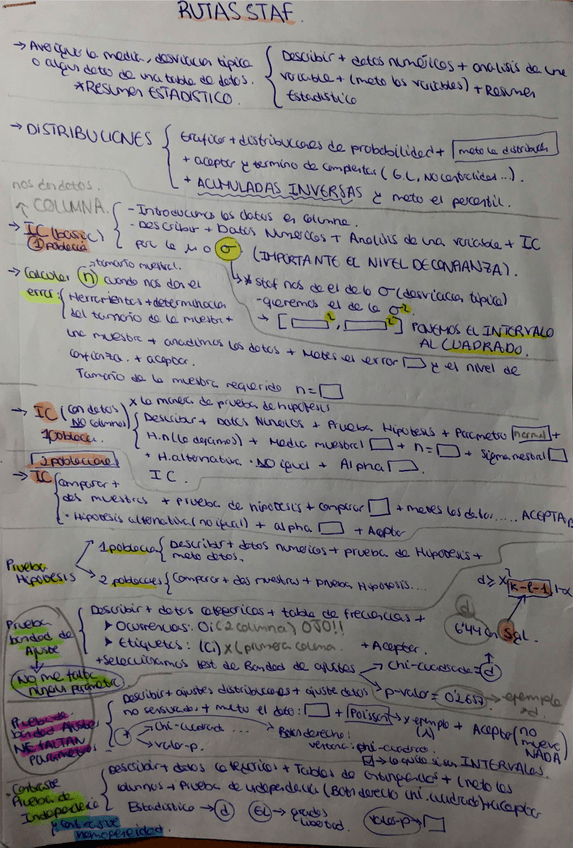 RUTAS STAF.
→ Averiguar la media, desviación típica
o algún dato de una tabla de datos.
* RESUMEN ESTADÍSTICO.
Describir + datos numéricos + análisis de una
variable + (meto las variables) + Resumen
Estadístico
→ DISTRIBUCIONES
Gráficos + distribuciones de probabilidad + meto la distribución
+ aceptar y termino de completar (G.L, No centralidad...).
+ ACUMULADAS INVERSAS y meto el percentil.
nos dan datos.
↑ COLUMNA.
→ IC (básico)
1 población
- Introducimos los datos en columna.
- Describir + Datos Numéricos + Análisis de una variable + IC
por la μ o σ (IMPORTANTE EL NIVEL DE CONFIANZA).
* staf nos da el de la σ (desviación típica)
- queremos el de la σ²
→ [ ², ²] PONEMOS EL INTERVALO
AL CUADRADO.
tamaño muestral.
→ Calcular n cuando nos dan el
error:
Herramientas + determinación
del tamaño de la muestra +
una muestra + añadimos los datos + Metes el error y el nivel de
confianza + aceptar.
Tamaño de la muestra requerido n =
* la manera de prueba de hipótesis
→ IC (con datos)
NO columnas
1 población
Describir + Datos Numéricos + Prueba Hipótesis + Parámetro normal +
H.n (la decimos) + Media muestral + n = + sigma muestral
+ H. alternativa · NO igual + Alpha
2 poblaciones
IC.
→ IC
Comparar +
dos muestras + prueba de hipótesis + comparar + metes los datos..... ACEPTAR
· Hipótesis alternativa (no igual) + alpha + Aceptar
Prueba
Hipótesis
1 población
Describir + datos numéricos + prueba de Hipótesis +
meto datos.
2 poblaciones
Comparar + dos muestras + prueba Hipótesis....
d ≥ X² k-l-1, 1-α
Prueba
bondad de
Ajuste
No me falta
ningún parámetro
Describir + datos categóricos + tabla de frecuencias +
▸ Ocurrencias: Oi (2 columna) OJO!!
▸ Etiquetas: (Ci) * (primera columna + Aceptar
+ Seleccionamos test de Bondad de ajustes
chi-cuadrada = d
p-valor = → ejemplo
Prueba de
bondad Ajuste
ME FALTAN
Parámetros
Describir + ajustes distribuciones + ajuste datos
no censurados + meto el dato: + Poisson → ejemplo + Aceptar (no
(λ) muevo
NADA
+ chi-cuadrado ...
→ valor-p.
Botón derecho
ventana: chi-cuadrado.
INTERVALOS.
- Contraste
Prueba de
Independencia
y contraste
homogeneidad
Describir + datos categóricos + Tablas de contingencia + (meto las
columnas + Prueba de independencia (Botón derecho chi.cuadrado) + aceptar
Estadístico → d GL → grados
libertad.
valor-p →